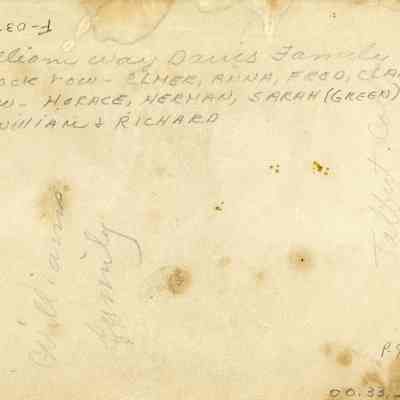 F-D3
lliam Way Davis Family
ack row - ELMER, ANNA, FRED, CLAR
w - HORACE, HERMAN, SARAH (GREEN)
William & RICHARD
Williams
Family
Talbot Co
P.9
00.33.